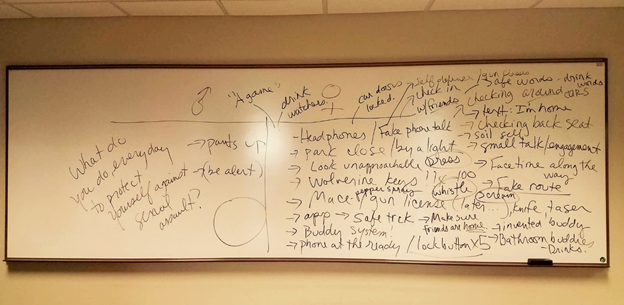 What do
you do, everyday
to protect
yourself against
sexual
assault?
♂
→ pants up
→ (be alert)
"A game"
drink
watchers.
♀
car doors
locked.
self defense / gun classes
check in
w/ friends
safe words - drink
words
checking around cars
text: I'm home
→ Headphones / Fake phone talk
→ checking back seat
→ park close / by a light
→ small talk/engagement
→ Look unapproachable (Dress)
→ Facetime along the
way
→ Wolverine keys !! x 100
pepper spray
whistle
→ Fake route
→ Mace / gun license (later...)
scream
knife, taser
→ app → Safe trek
→ Make sure
friends are home
→ invented buddy
→ Buddy System!
→ Bathroom buddies
- Drinks.
→ phone at the ready / lock button x5